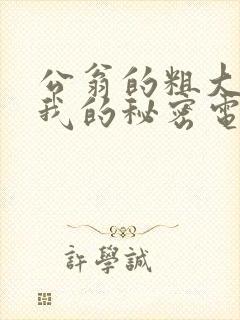 公翁的粗大
我的秘密電
許學誠